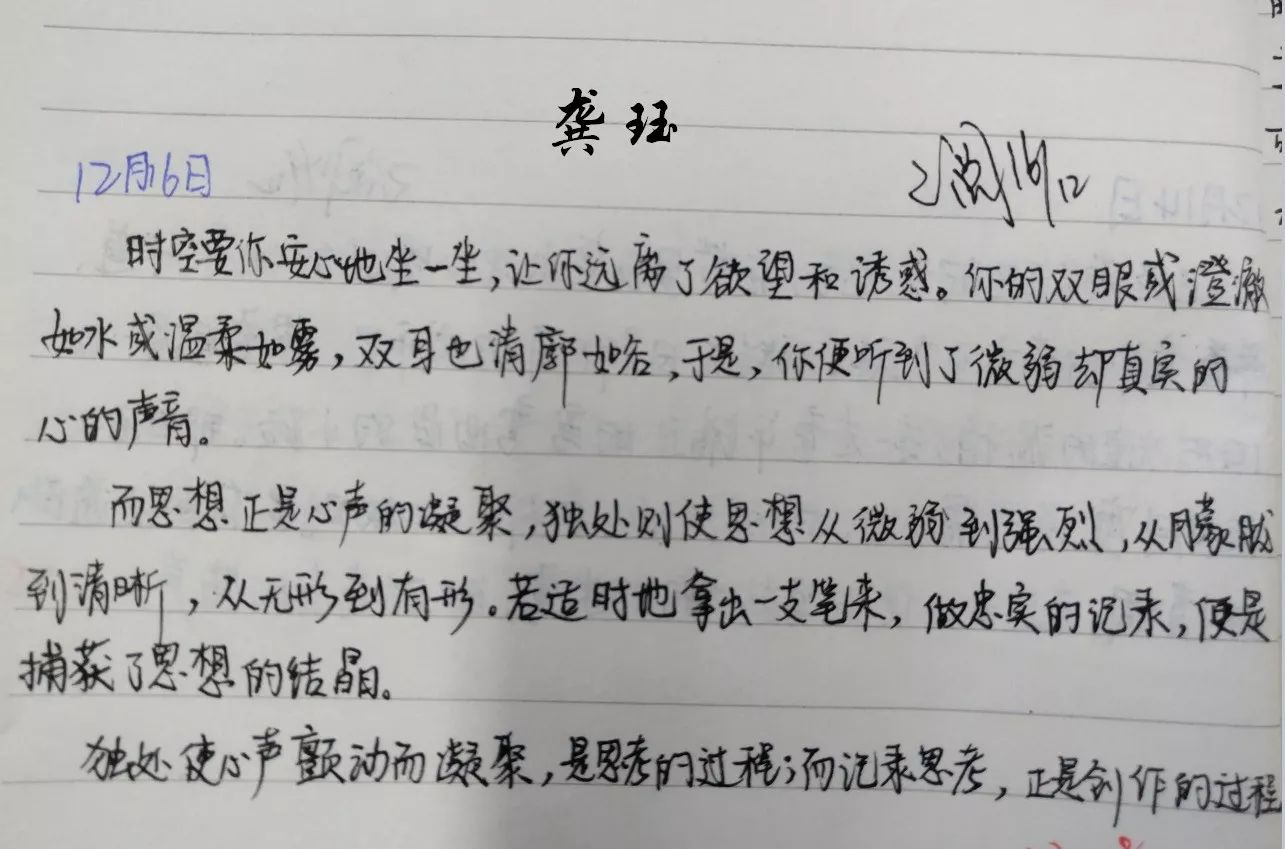 龚珏
12月6日
时空要你安心地坐一坐，让你远离了欲望和诱惑。你的双眼或澄澈
如水或温柔如雾，双耳也清廓如谷，于是，你便听到了微弱却真实的
心的声音。
而思想正是心声的凝聚，独处则使思想从微弱到强烈，从朦胧
到清晰，从无形到有形。若适时地拿出一支笔来，做忠实的记录，便是
捕获了思想的结晶。
独处使心声颤动而凝聚，是思考的过程；而记录思考，正是创作的过程